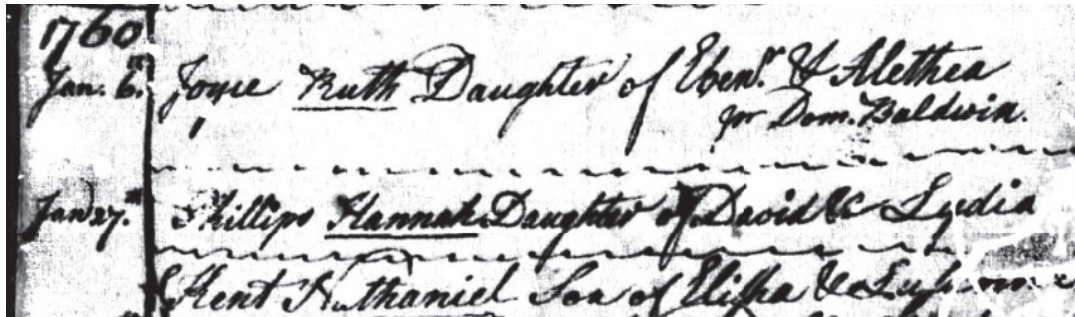 1760
Jan. 6.th Joyce Ruth Daughter of Eben.r & Alethea
pr Dom. Baldwin.
Jan 27.th Phillips Hannah Daughter of David & Lydia
Kent Nathaniel Son of Elisha &